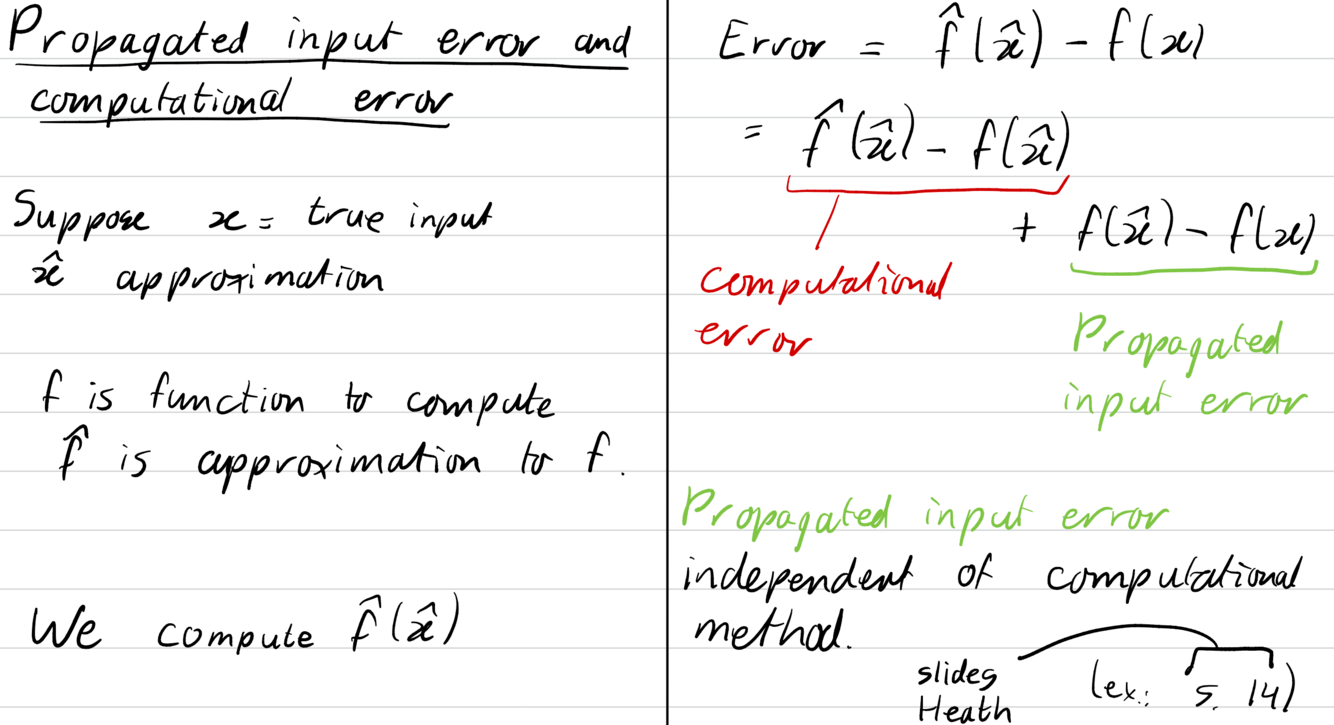 Propagated input error and
computational error
Suppose x = true input
x̂ approximation
f is function to compute
f̂ is approximation to f.
We compute f̂(x̂)
Error = f̂(x̂) - f(x)
= f̂(x̂) - f(x̂)
+ f(x̂) - f(x)
Computational
error
Propagated
input error
Propagated input error
independent of computational
method.
slides
Heath
(ex.: s. 14)